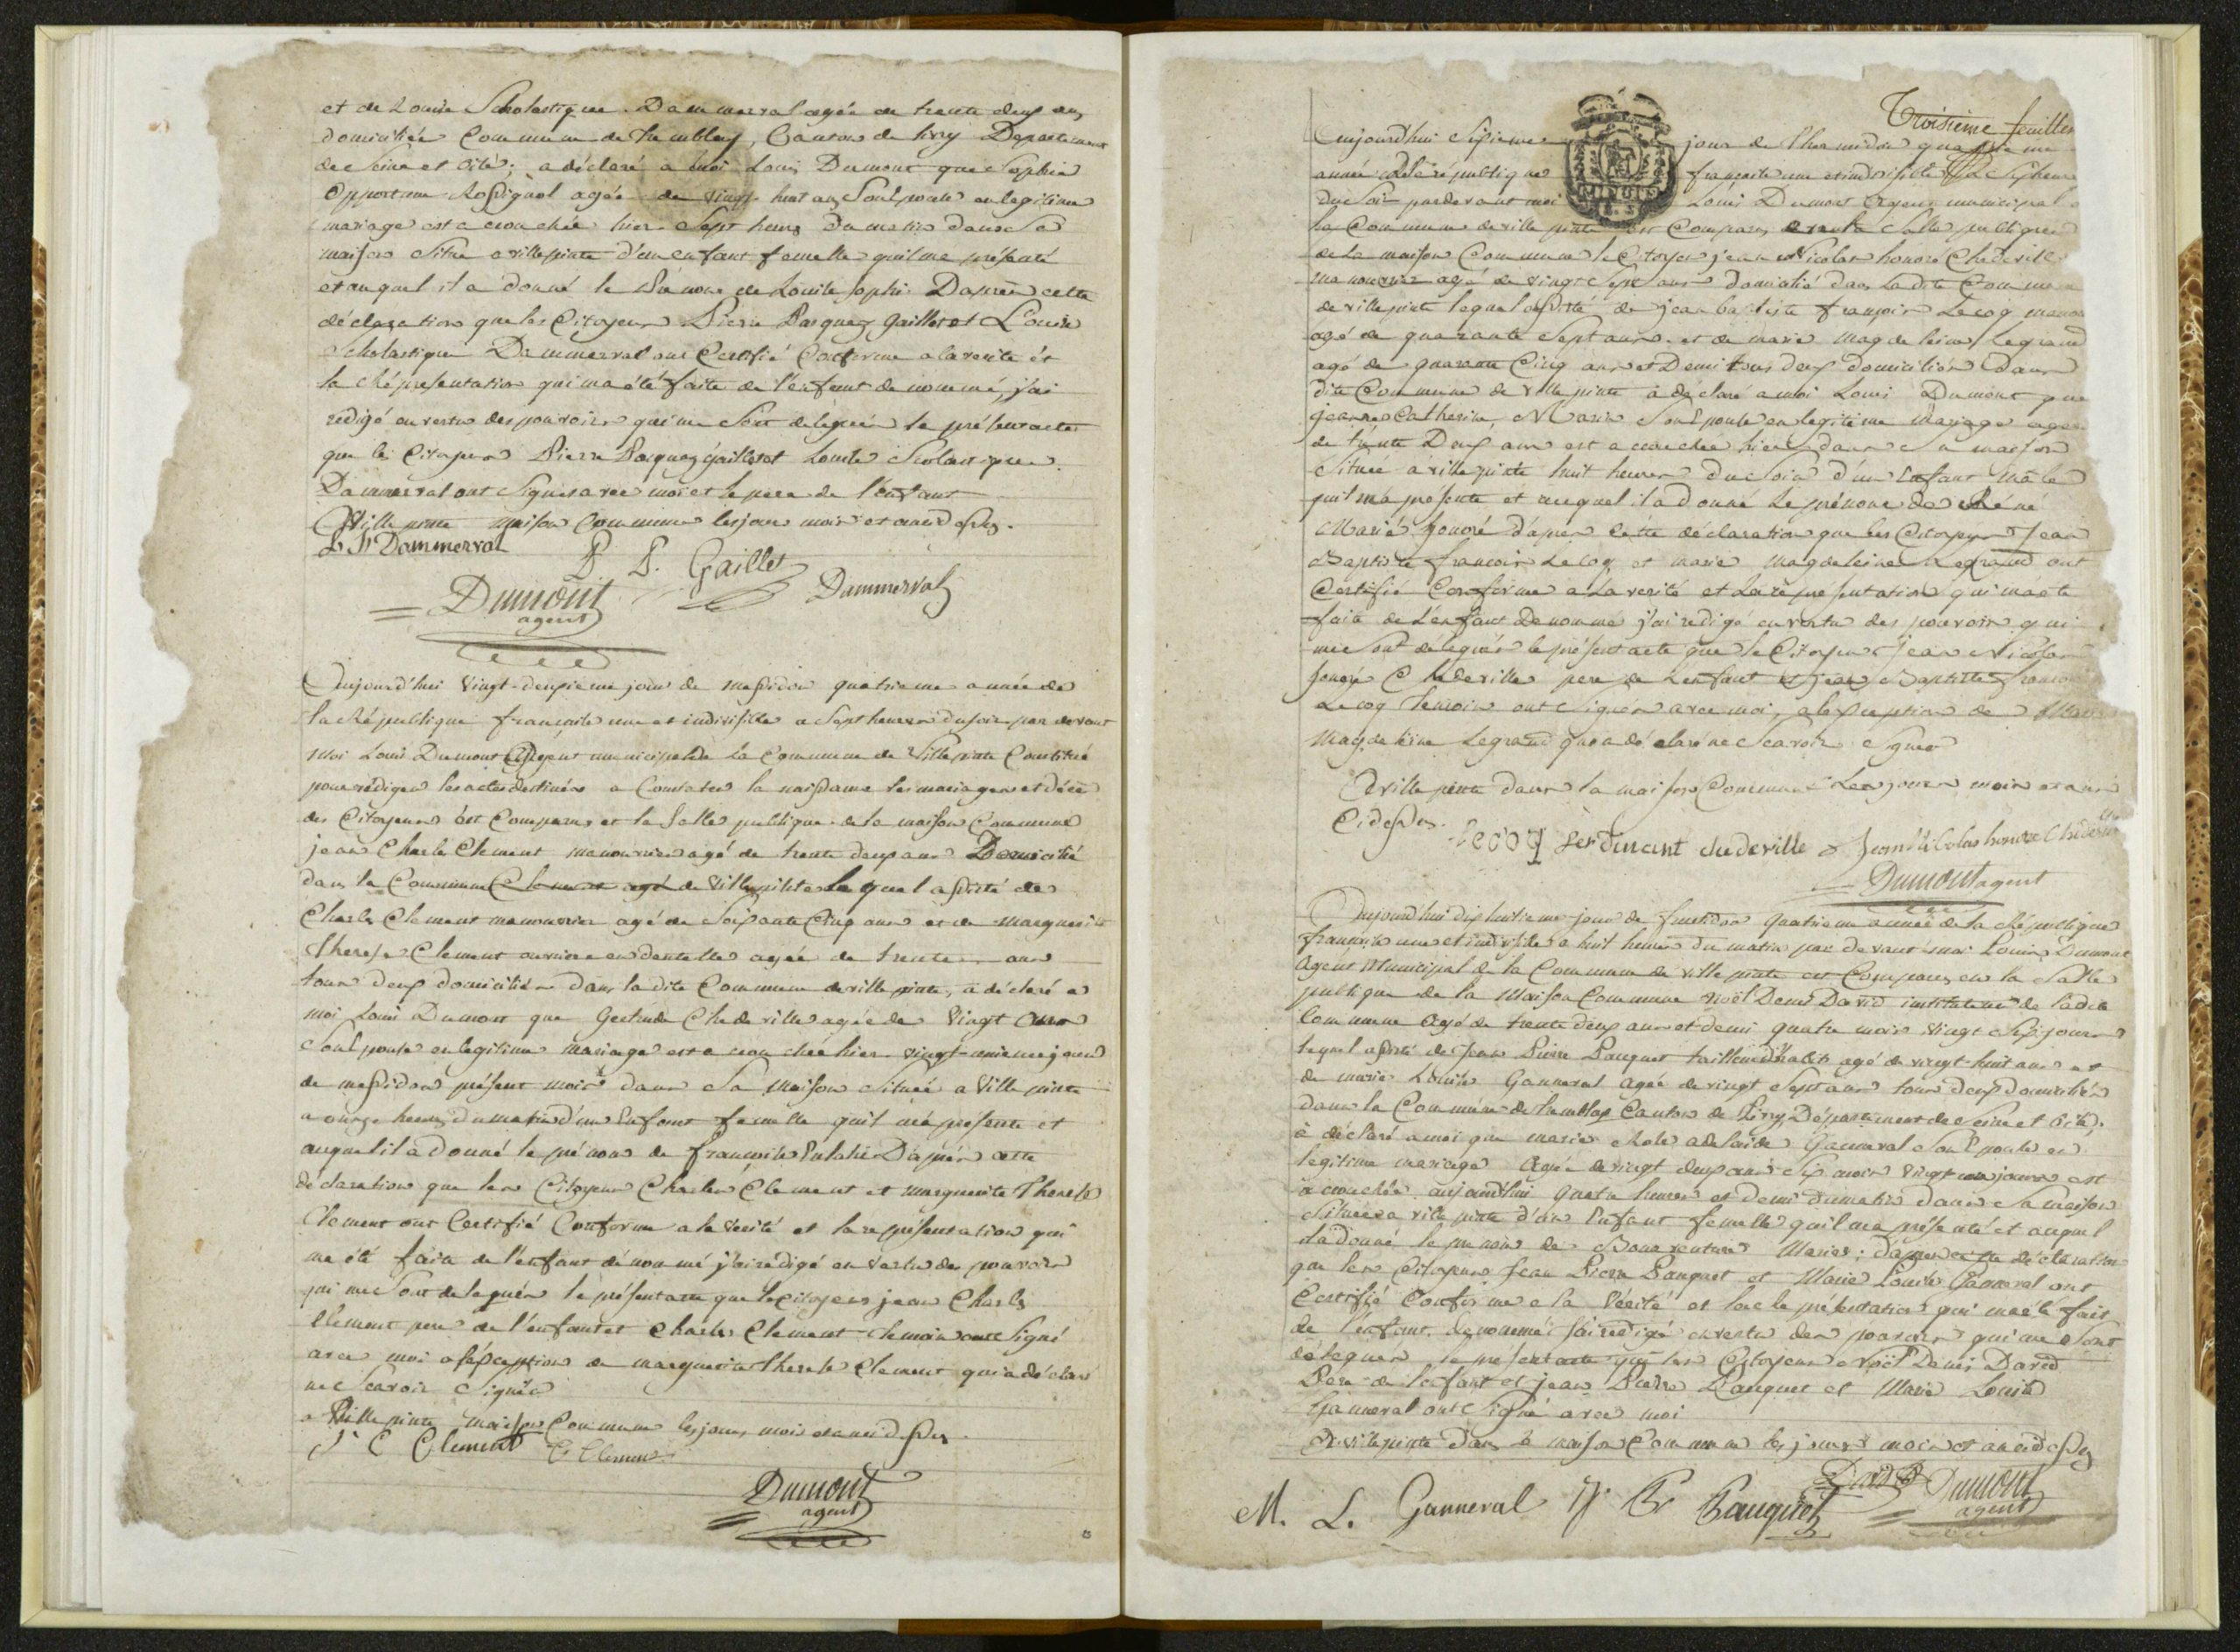 et de Louise Scholastique Dammerval agée de trente deux ans
domiciliée Commune de Tremblay, Canton de livry Departement
de Seine et Oise; a déclaré a moi Louis Dumont que Sophie
Opportune Rossignol agée de vingt huit ans Son Epouse en legitime
mariage est accouchée hier Sept heures du matin dans Sa
maison Situé a villepinte d'un enfant femelle quil me présenté
et auquel il a donné le Prénom de Louise Sophie D'après cette
déclaration que les Citoyens Pierre Gaillet et Louise
Scholastique Dammerval ont Certifié Conforme a la verité et
la Répresentation qui ma été faite de l'enfant denommé, j'ai
redigé en vertu des pouvoirs qui me Sont delegués le présent acte
que les Citoyens Pierre Gaillet et Louise Scolastique
Dammerval ont Signés avec moi et le pere de l'enfant
A Villepinte maison Commune les jour mois et an cidessus.
L S Dammerval P P. Gaillet
Dumont agent Dammerval
Aujourd'hui Vingt-deuxieme jour de messidor quatrieme année de
la République française une et indivisible a Sept heures du soir par devant
moi Louis Dumont Agent municipal de la Commune de Villepinte Constitué
pour rédiger les actes destinés a Constater la naissance les mariages et décès
des Citoyens est Comparus et la Salle publique de la maison Commune
jean Charle Clement manouvrier agé de trente deux ans Domicilié
dans la Commune de Villepinte lequel assisté de
Charles Clement manouvrier agé de Soixante Cinq ans et de marguerite
Therese Clement ouvriere en dentelle agée de trente ans
tous deux domiciliés dans ladite Commune de villepinte, a déclaré a
moi Louis Dumont que Gertrude Chedeville agée de Vingt ans
Son Epouse en legitime mariage est accouchée hier vingt-unieme jour
de messidor présent mois dans Sa Maison Située a Villepinte
a onze heures du matin d'un Enfant femelle quil ma présenté et
auquel il a Donné le prénom de françoise Eulalie D'après cette
déclaration que les Citoyens Charles Clement et marguerite Therese
Clement ont Certifié Conforme a la Verité et la représentation qui
ma été faite de l'enfant dénommé j'ai redigé en vertu des pouvoirs
qui me Sont delegués le présent acte que le citoyens jean Charles
Clement pere de l'enfant et Charles Clement temoin ont Signé
avec moi a l'exception de marguerite Therese Clement qui a déclaré
ne Scavoir Signer
a Villepinte maison Commune les jour mois et an cidessus
J C Clement C Clement
Dumont
agent
Troisieme feuillet
Aujourd'hui Sixieme jour de Thermidor quatrieme
année de la république française une et indivisible Sept heures
du Soir pardevant moi Louis Dumont Agent municipal
la Commune de villepinte est Comparus dans la Salle publique
de la maison Commune le Citoyen jean Nicolas honoré Chedeville
manouvrier agé de vingt Sept ans Domicilié dans Ladite Commune
de villepinte lequel assisté de jean baptiste françois Lecoq
agé de quarante Sept ans et de marie Magdeleine Legrand
agé de quarante Cinq ans et Demi tous deux domiciliés dans
dite Commune de Villepinte a déclaré a moi Louis Dumont que
jeanne Catherine Marin Son Epouse en legitime Mariage agée
de trente Deux ans est accouchée hier dans Sa maison
Située a villepinte huit heures du Soir d'un Enfant Mâle
quil ma présenté et auquel il a donné Le prénom de Réné
Marié honoré d'après cette déclaration que les Citoyens Jean
Baptiste françois Lecoq et marie Magdeleine Legrand ont
Certifié Conforme a La verité et La représentation qui ma été
faite de L'enfant Denommé j'ai redigé en vertu des pouvoirs qui
me Sont délegués le présent acte que le Citoyen Jean Nicolas
honoré Chedeville pere de Lenfant et jean Baptiste françois
Lecoq Temoin ont Signés avec moi, a l'exception de Marie
Magdeleine Legrand qui a déclaré ne Scavoir Signer
A villepinte dans la maison Commune Les jour mois et an
Cidessus. Lecoq ferdinant chedeville Jean Nicolas honoré Chedeville
Dumont agent
Aujourd'hui dix huitieme jour de fructidor quatrieme année de la République
française une et indivisible a huit heures du matin par devant moi Louis Dumont
Agent Municipal de la Commune de Villepinte est Comparus en la Salle
publique de la Maison Commune Noël Denis David instituteur de ladite
Commune Agé de trente deux ans et demi quatre mois Vingt jours
lequel assisté de Jean Pierre Pauquet tailleur d'habits agé de vingt-huit ans et
de marie Louise Ganneral agée de vingt Sept ans tous deux Domiciliés
dans la Commune de Tremblay Canton de Livry Département de Seine et Oise
a déclaré a moi que marie adelaide Ganneral Son Epouse en
legitime mariage agée de vingt deux ans Six mois Vingt jours est
accouchée aujourd'hui quatre heures et demi du matin dans Sa maison
Située a villepinte d'un Enfant femelle quil ma présenté et auquel
il a donné le prenom de Bonaventure Marie; d'après cette déclaration
que les Citoyens Jean Pierre Pauquet et Marie Louise Ganneral ont
Certifié Conforme a la Vérité et la représentation qui ma été fait
de l'enfant denommé j'ai redigé en vertu des pouvoirs qui me Sont
délegués le présent acte que les Citoyens Noël Denis David
Pere de l'enfant et jean Pierre Pauquet et Marie Louise
Ganneral ont Signé avec moi
A villepinte dans la maison Commune les jour mois et an cidessus
David Dumont
agent
M. L. Ganneral J. P. Pauquet